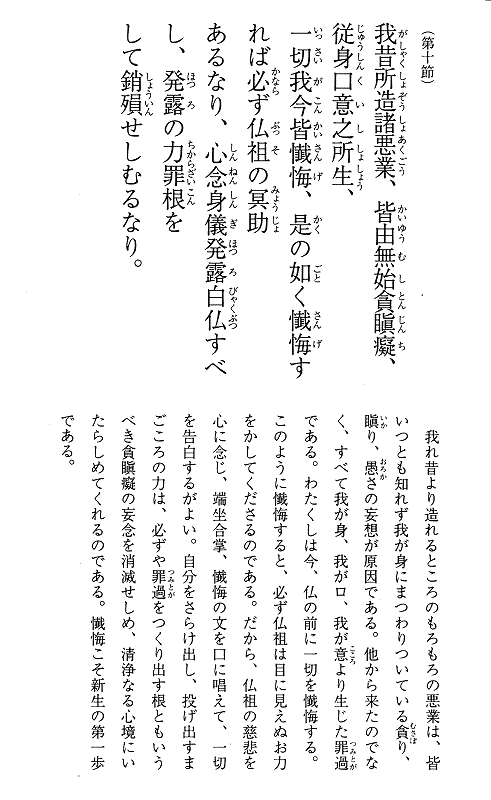 （第十節）
我昔所造諸悪業、皆由無始貪瞋癡、
従身口意之所生、
一切我今皆懺悔、是の如く懺悔す
れば必ず仏祖の冥助
あるなり、心念身儀発露白仏すべ
し、発露の力罪根を
して銷殞せしむるなり。
我れ昔より造れるところのもろもろの悪業は、皆
いつとも知れず我が身にまつわりついている貪り、
瞋り、愚さの妄想が原因である。他から来たのでな
く、すべて我が身、我が口、我が意より生じた罪過
である。わたくしは今、仏の前に一切を懺悔する。
このように懺悔すると、必ず仏祖は目に見えぬお力
をかしてくださるのである。だから、仏祖の慈悲を
心に念じ、端坐合掌、懺悔の文を口に唱えて、一切
を告白するがよい。自分をさらけ出し、投げ出すま
ごころの力は、必ずや罪過をつくり出す根ともいう
べき貪瞋癡の妄念を消滅せしめ、清浄なる心境にい
たらしめてくれるのである。懺悔こそ新生の第一歩
である。